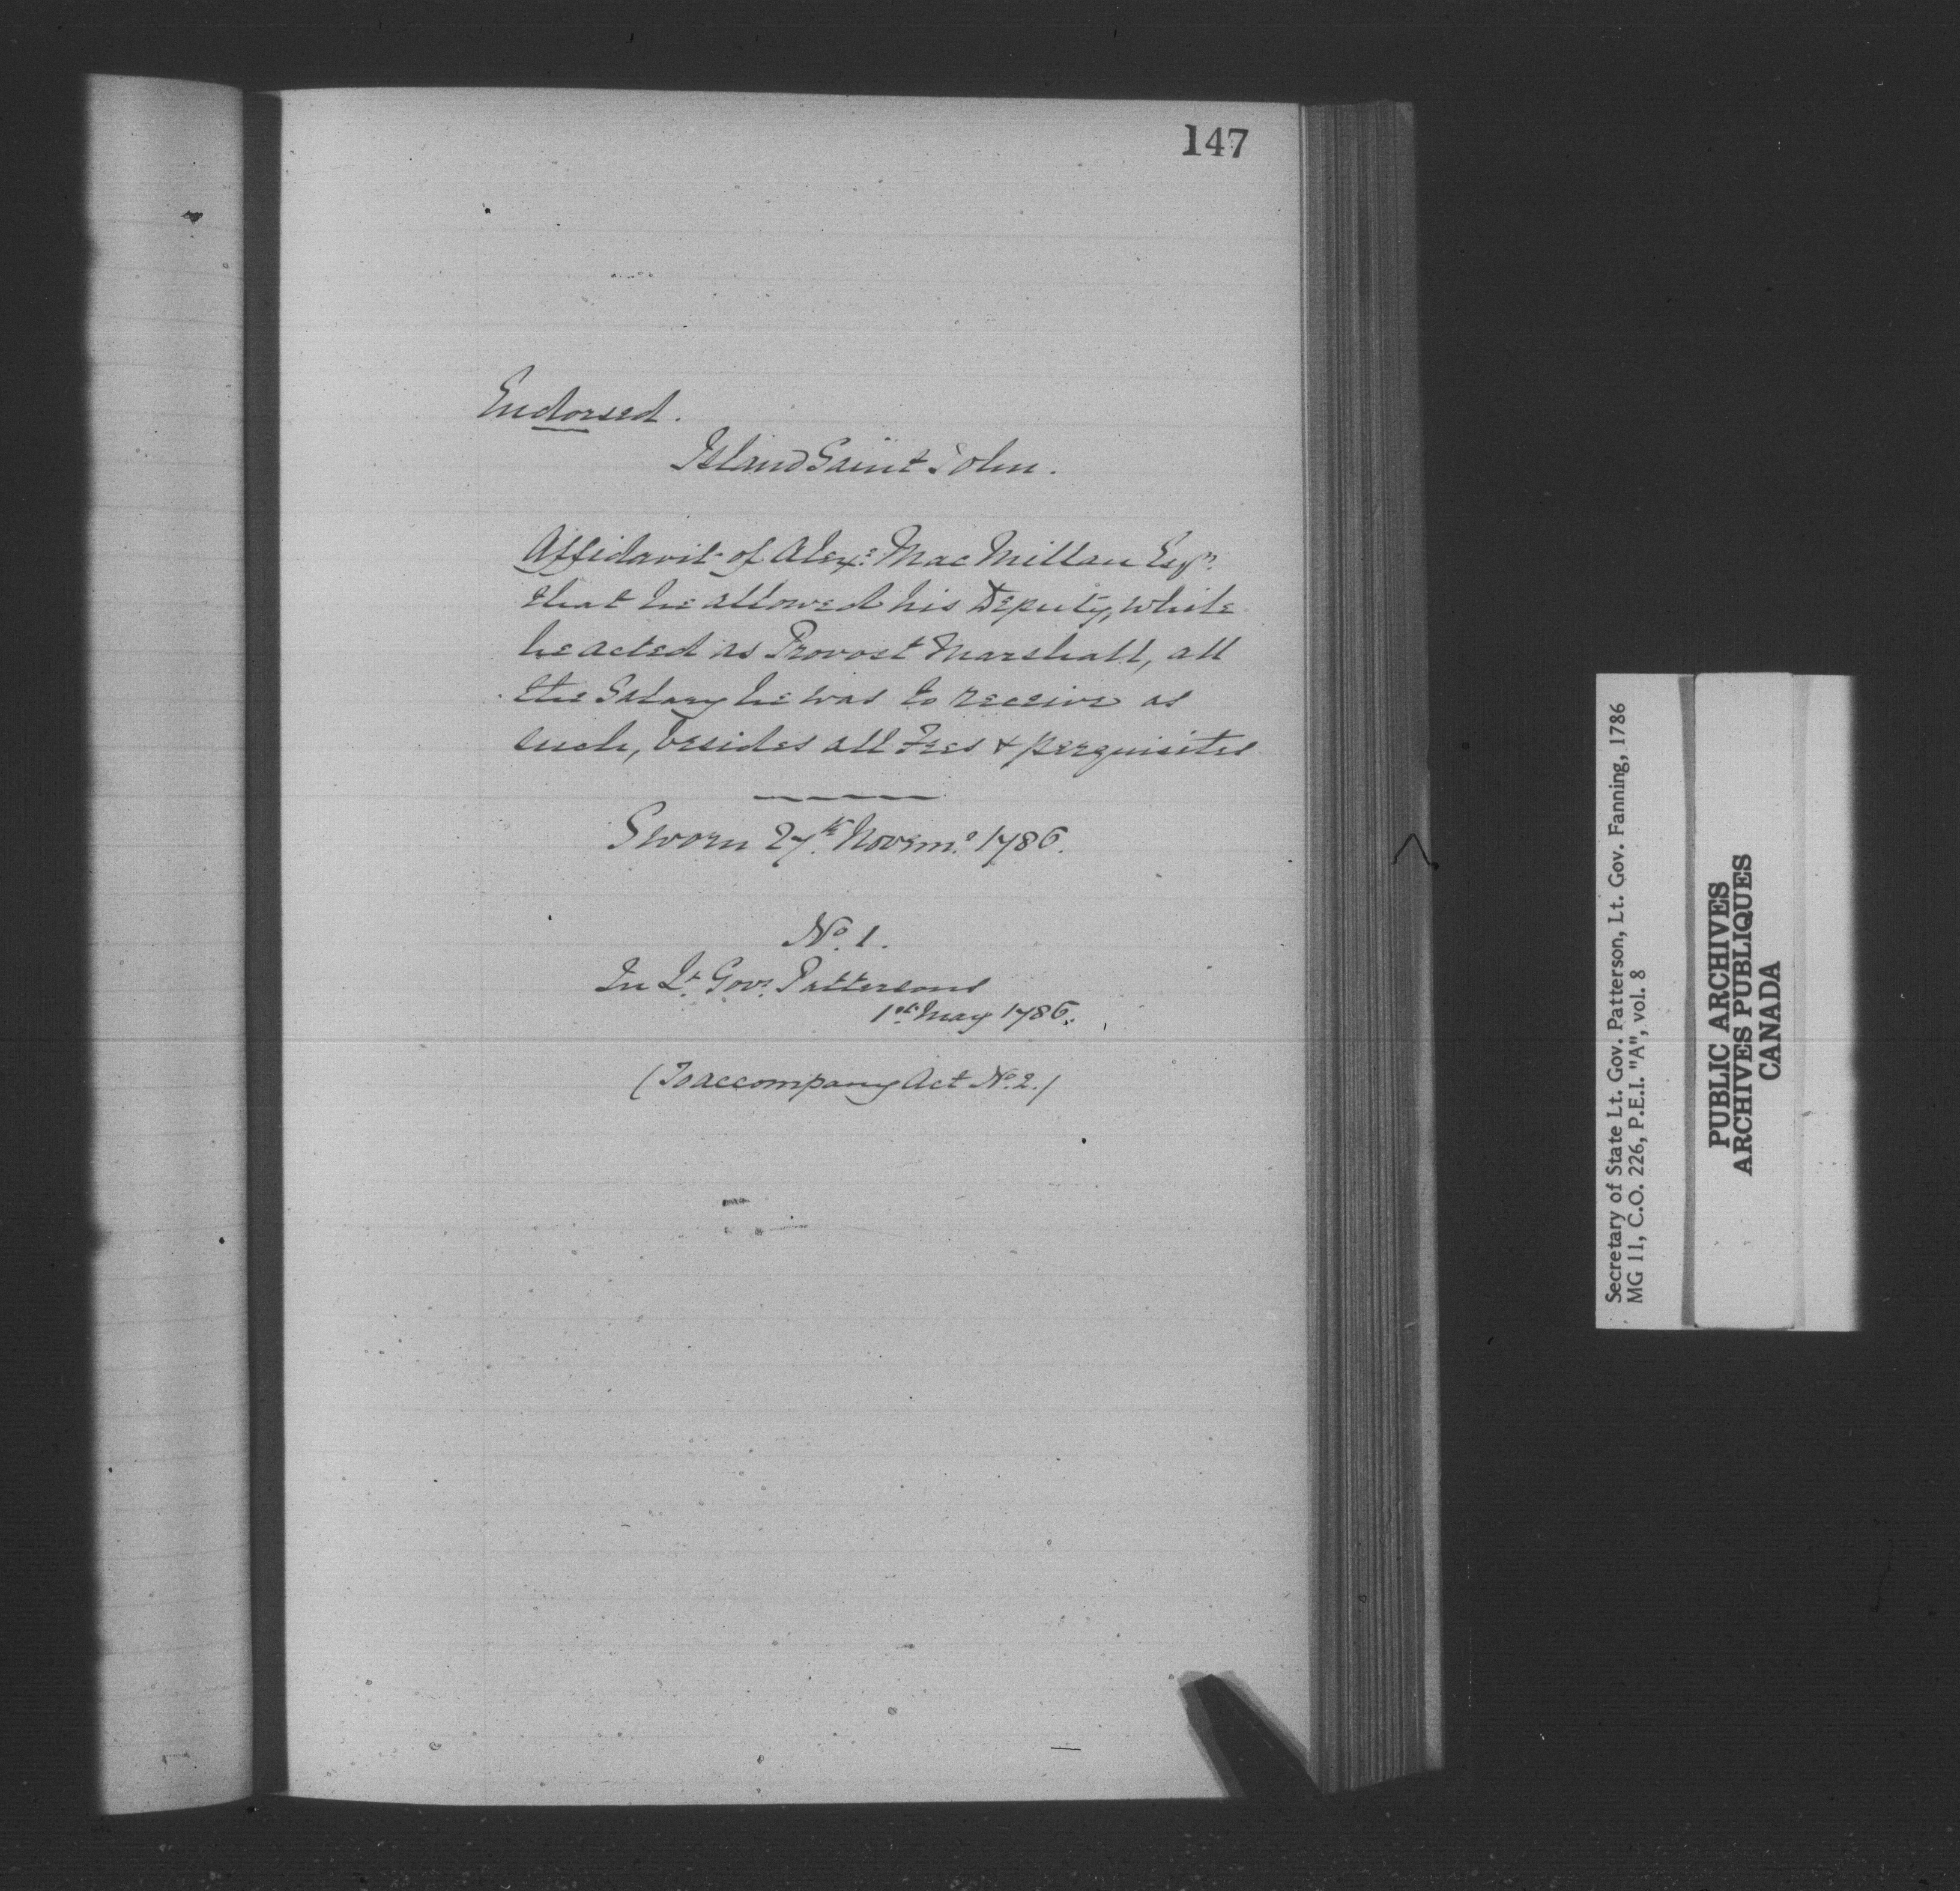 147
Endorsed.
Island Saint John.
Affidavit of Alexr. MacMillan Esqr.
that he allowed his Deputy, while
he acted as Provost Marshall, all
the Salary he was to receive as
such, besides all Fees & perquisites
Sworn 27th. Novemr. 1786.
No. 1.
In Lt. Govr. Pattersons
1st. May 1786.
(To accompany Act No. 2.)
Secretary of State Lt. Gov. Patterson, Lt. Gov. Fanning, 1786
MG 11, C.O. 226, P.E.I. "A", vol. 8
PUBLIC ARCHIVES
ARCHIVES PUBLIQUES
CANADA